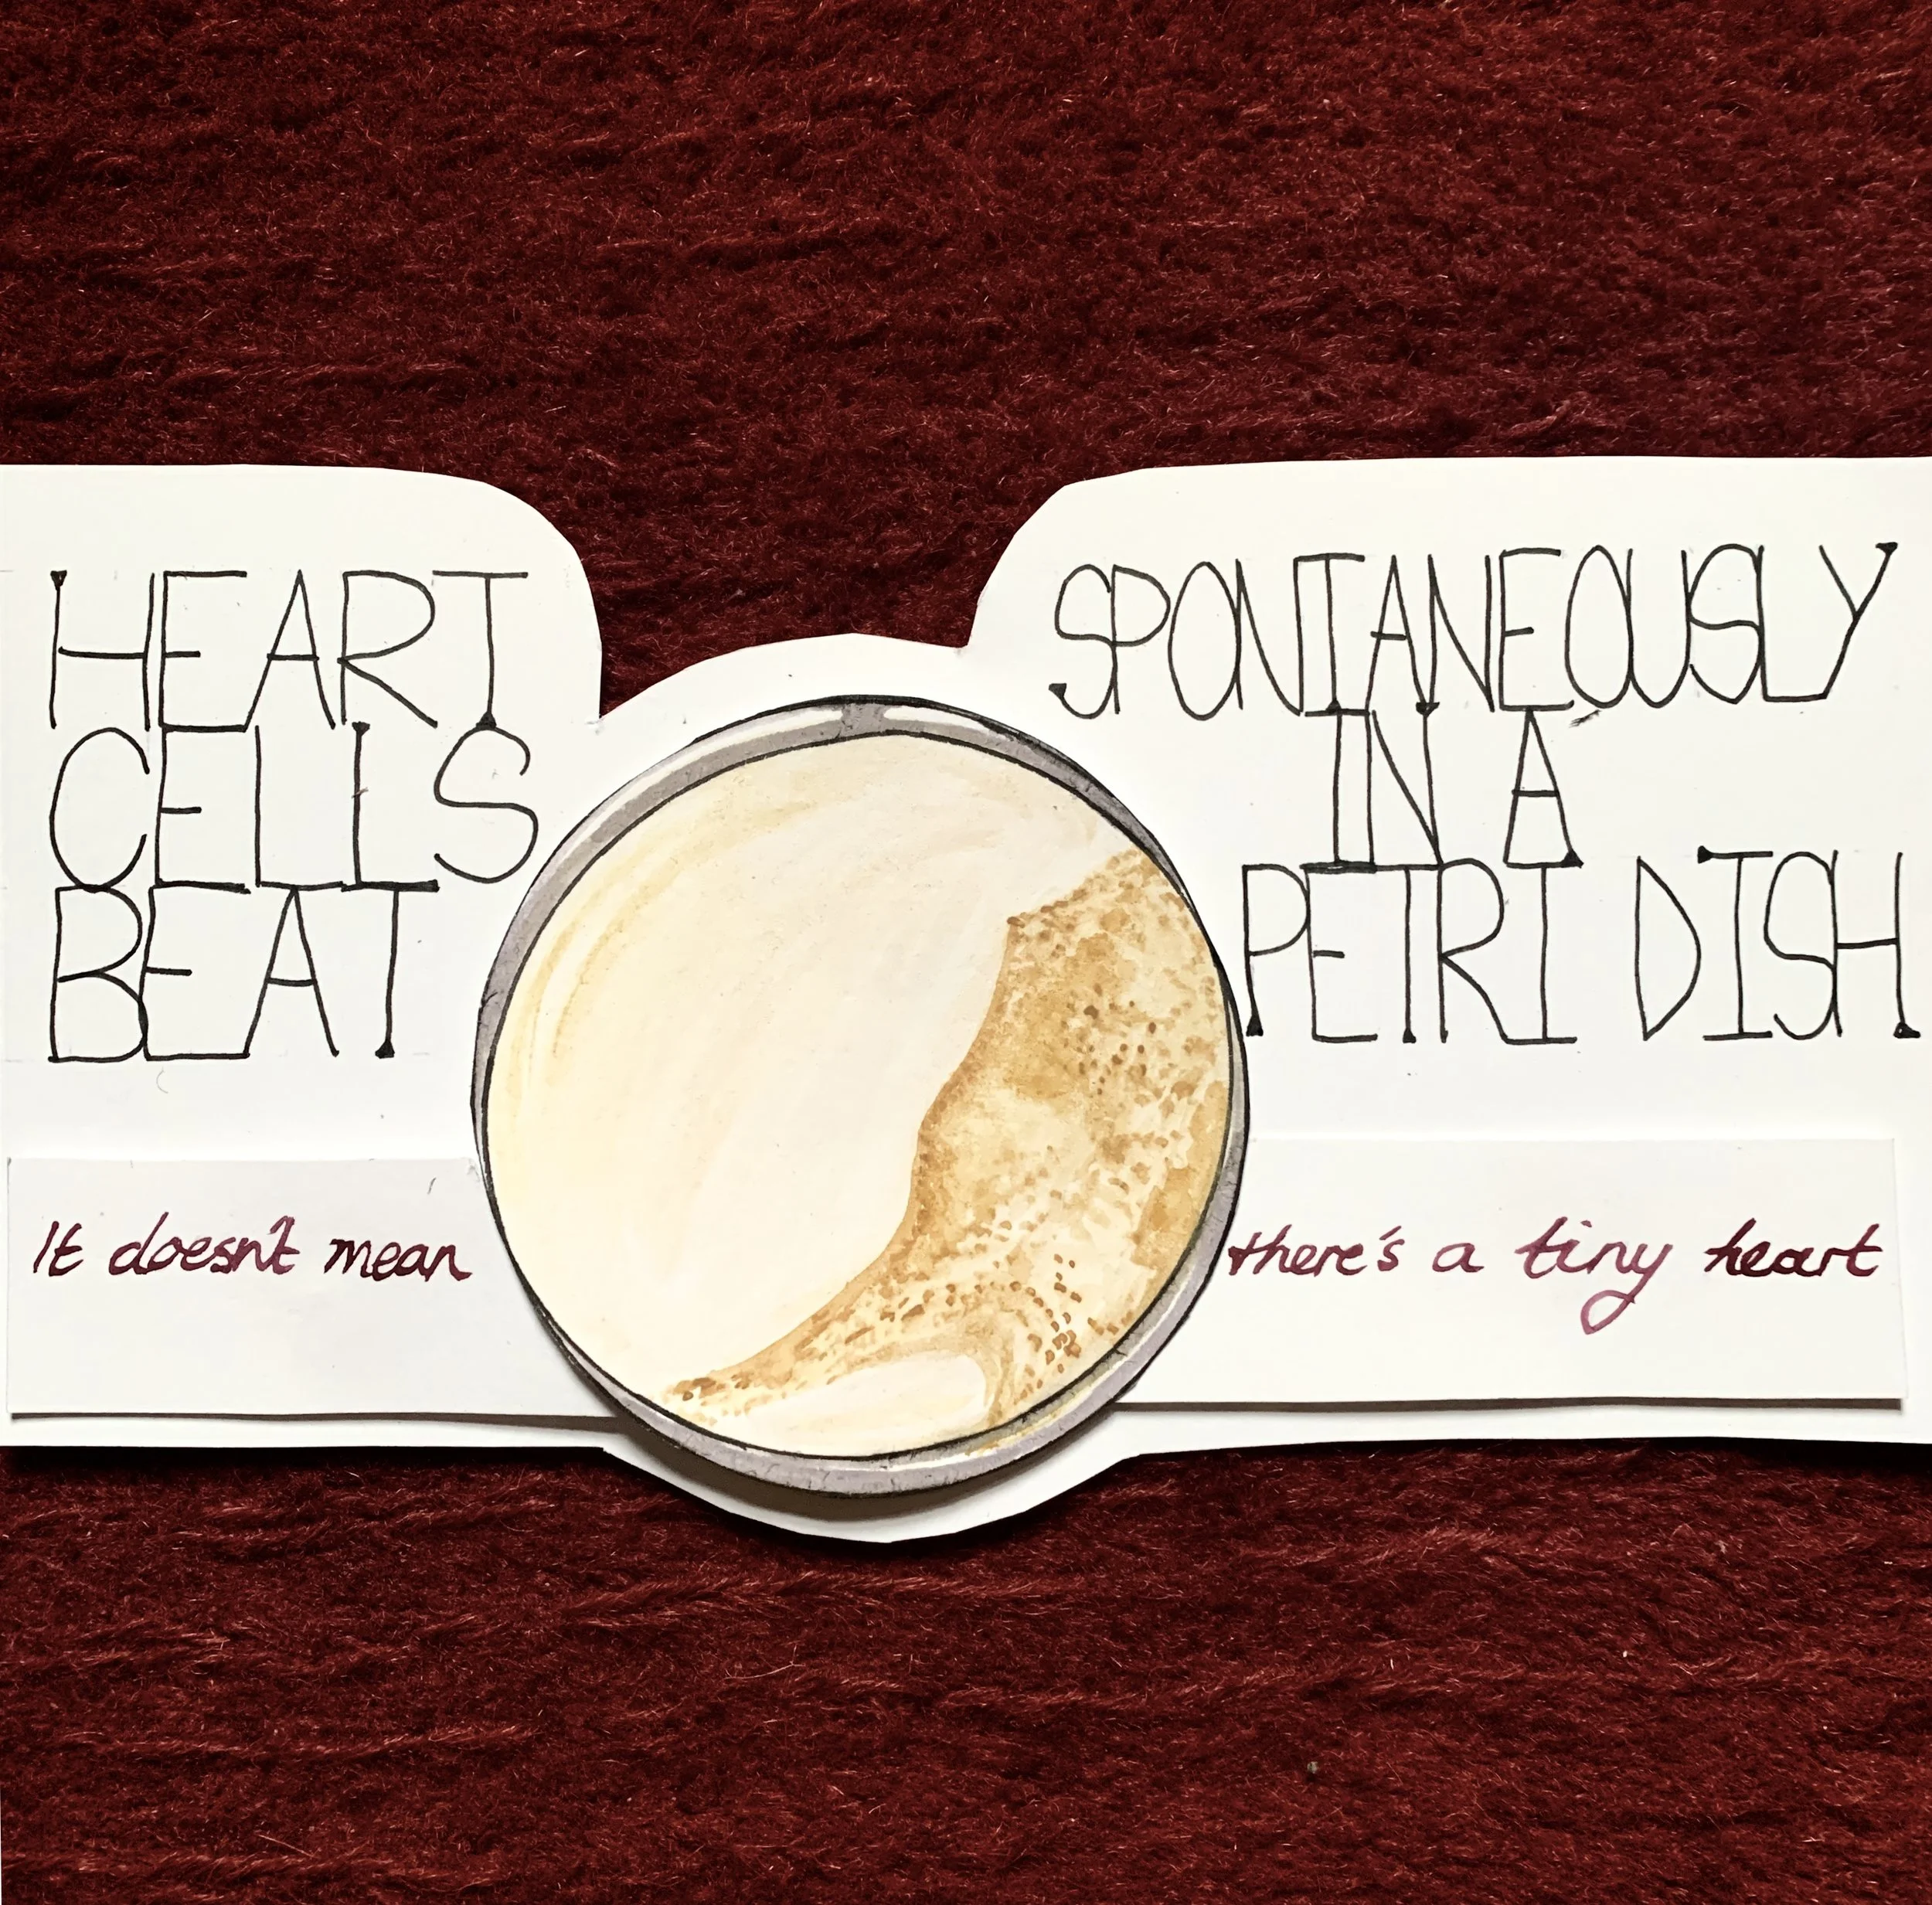 HEART
CELLS
BEAT
SPONTANEOUSLY
IN A
PETRI DISH
It doesn't mean
there's a tiny heart